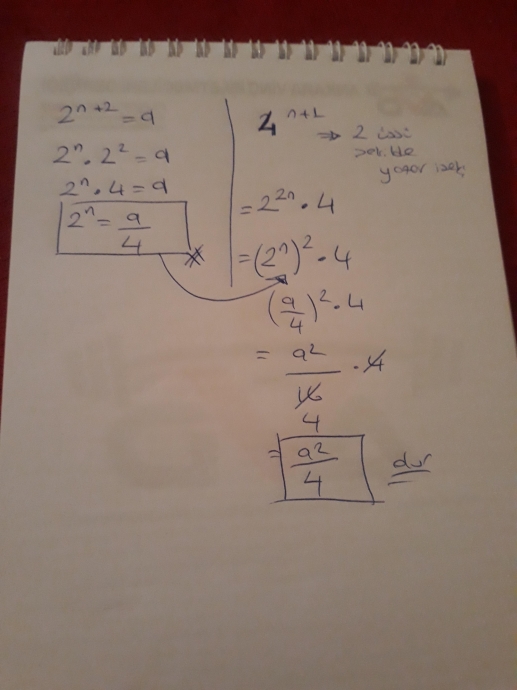 2^{n+2} = a
2^n . 2^2 = a
2^n . 4 = a
2^n = a/4
4^{n+1} => 2 üssü
şekilde
yazar isek
= 2^{2n} . 4
= (2^n)^2 . 4
(a/4)^2 . 4
= a^2/16 . 4
4
= a^2/4 dur